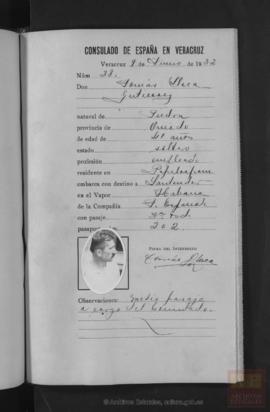 CONSULADO DE ESPAÑA EN VERACRUZ
Veracruz 9 de Junio de 1932
Núm 28.
Don Tomás Llaca
Gutierrez
natural de
provincia de Oviedo
de edad de 40 años
estado soltero
profesión empleado
residente en
embarca con destino a Santander
en el Vapor Habana
de la Compañía T. Española
con pasaje 3ª
pasaporte 202
FIRMA DEL INTERESADO
Tomás Llaca
Observaciones: medio pasaje
a cargo del Consulado.